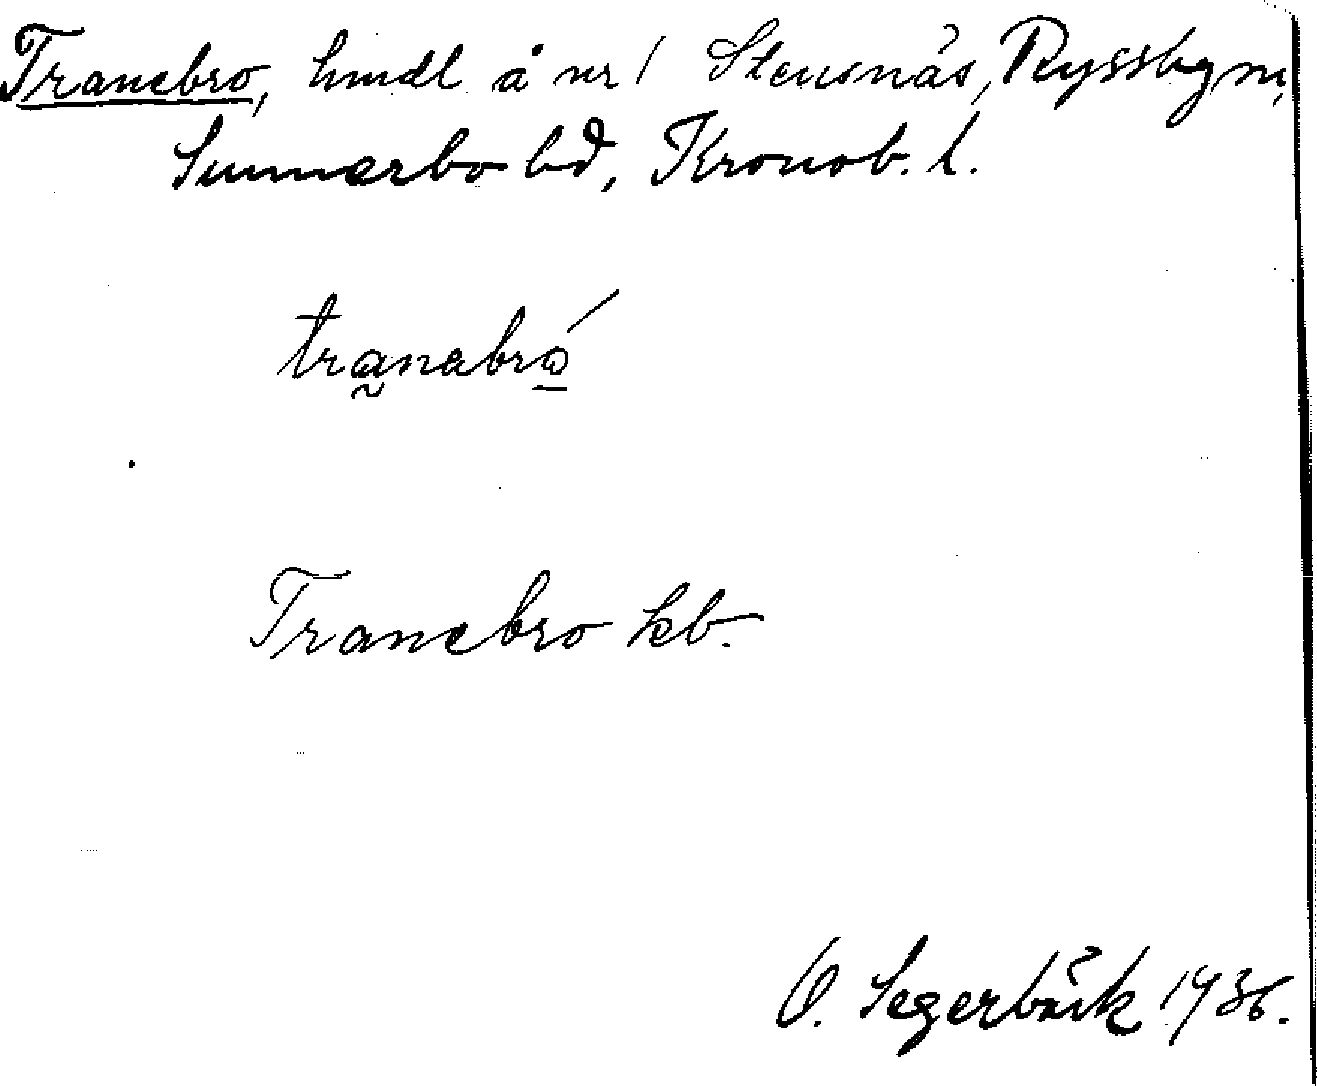 Tranebro, hmdl å nr 1 Stensnäs, Ryssby sn,
Sunnerbo hd, Kronob. l.
tranebró
Tranebro kb.
O. Segerbäck 1936.